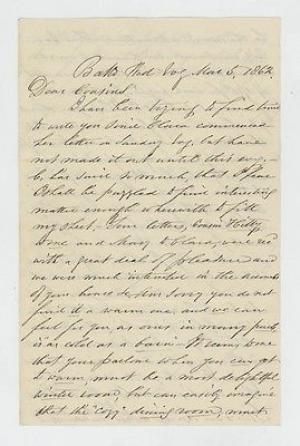 Balto Wed Evg Mar 5, 1862.
Dear Cousins
I have been trying to find time
to write you since Clara commenced
her letter on Sunday Evg, but have
not made it out until this evg.
C. has said so much, that I fear
I shall be puzzled to find interesting
matter enough wherewith to fill
my sheet. Your letters, Cousin Hitty
and Mary to Clara, were rec'd
with a great deal of pleasure and
we were much interested in the account
of your house. Am sorry you do not
find it a warm one, and we can
feel for you as ours in many parts
is as cold as a barn.
that your parlour when you can get
it warm, must be a most delightful
winter room, but can easily imagine
that the "cozy" dining room, must